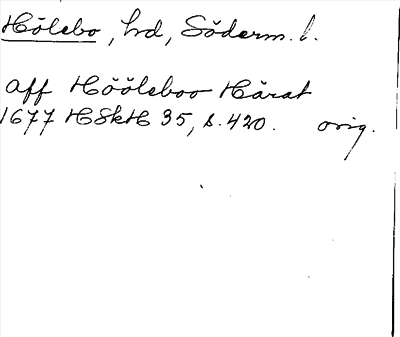 Hölebo, hd, Söderm. l.
aff Hööleboo Härat
1677 HSkH 35, s. 420. orig.